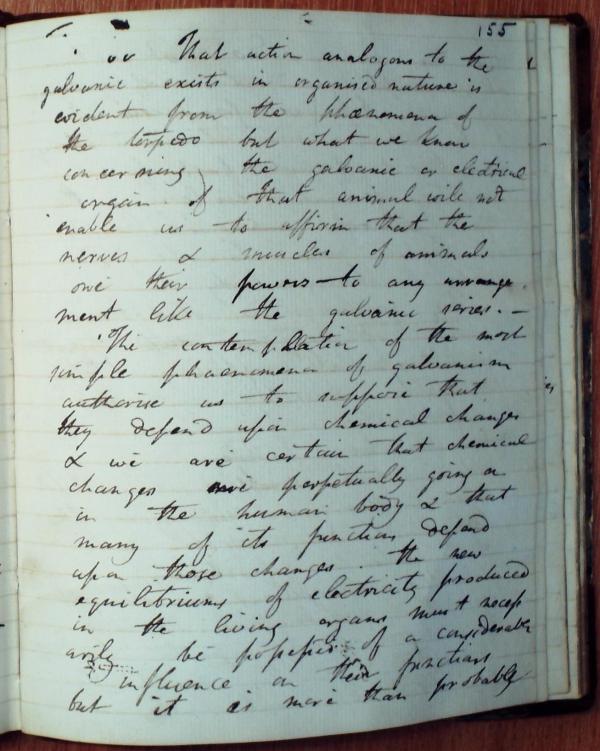 155
That action analogous to the
galvanic exists in organised nature is
evident from the phænomena of
the torpedo but what we know
concerning the galvanic or electrical
organ of that animal will not
enable us to affirm that the
nerves & muscles of animals
owe their powers to any arrange-
ment like the galvanic series. —
The contemplation of the most
simple phaenomena of galvanism
authorise us to suppose that
they depend upon chemical changes
& we are certain that chemical
changes are perpetually going on
in the human body & that
many of its functions depend
upon those changes. The new
equilibriums of electricity produced
in the living organs must necess
arily be possessed of a considerable
influence on their functions
but it is more than probable